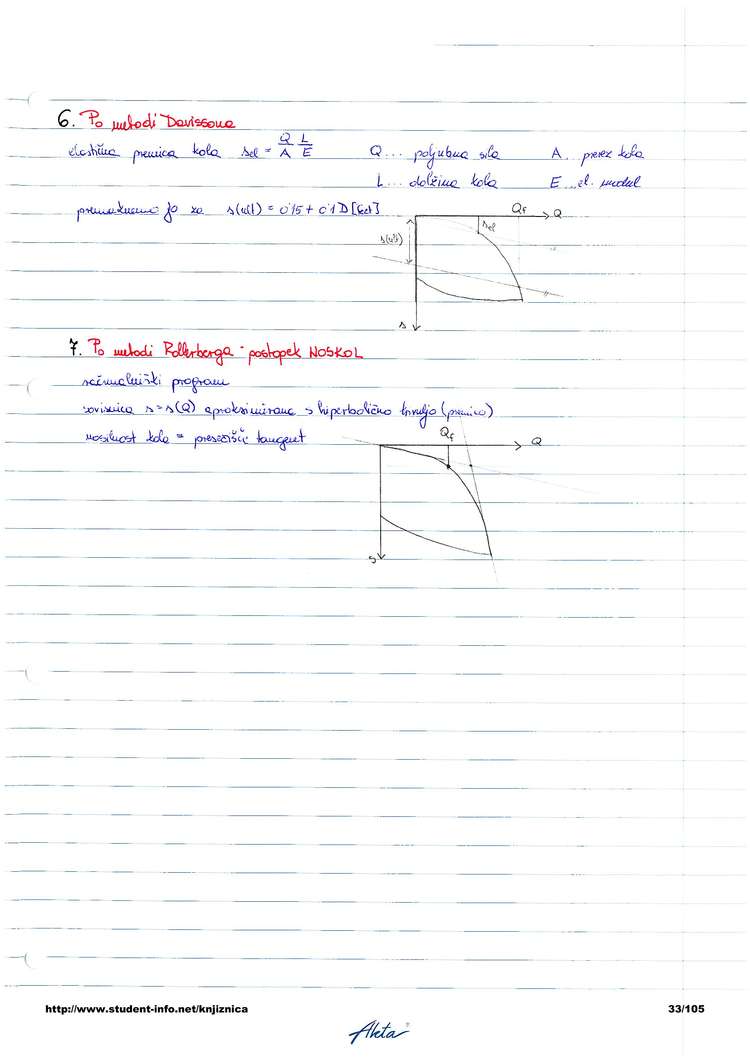 6. Po metodi Davissona
elastična premica kola sel = Q/A L/E Q... poljubna sila A.. prerez kola
L... dolžina kola E...el. modul
premaknemo jo za s(ult) = 0'15 + 0'1 D [feet]
Qf Q
sel
s(ult)
s
7. Po metodi Rollerberga - postopek NOSKOL
računalniški program
sovisnica s=s(Q) aproksimirana s hiperbolično krivuljo (premico)
nosilnost kola = presečišče tangent
Qf Q
s
http://www.student-info.net/knjiznica 33/105
Akta